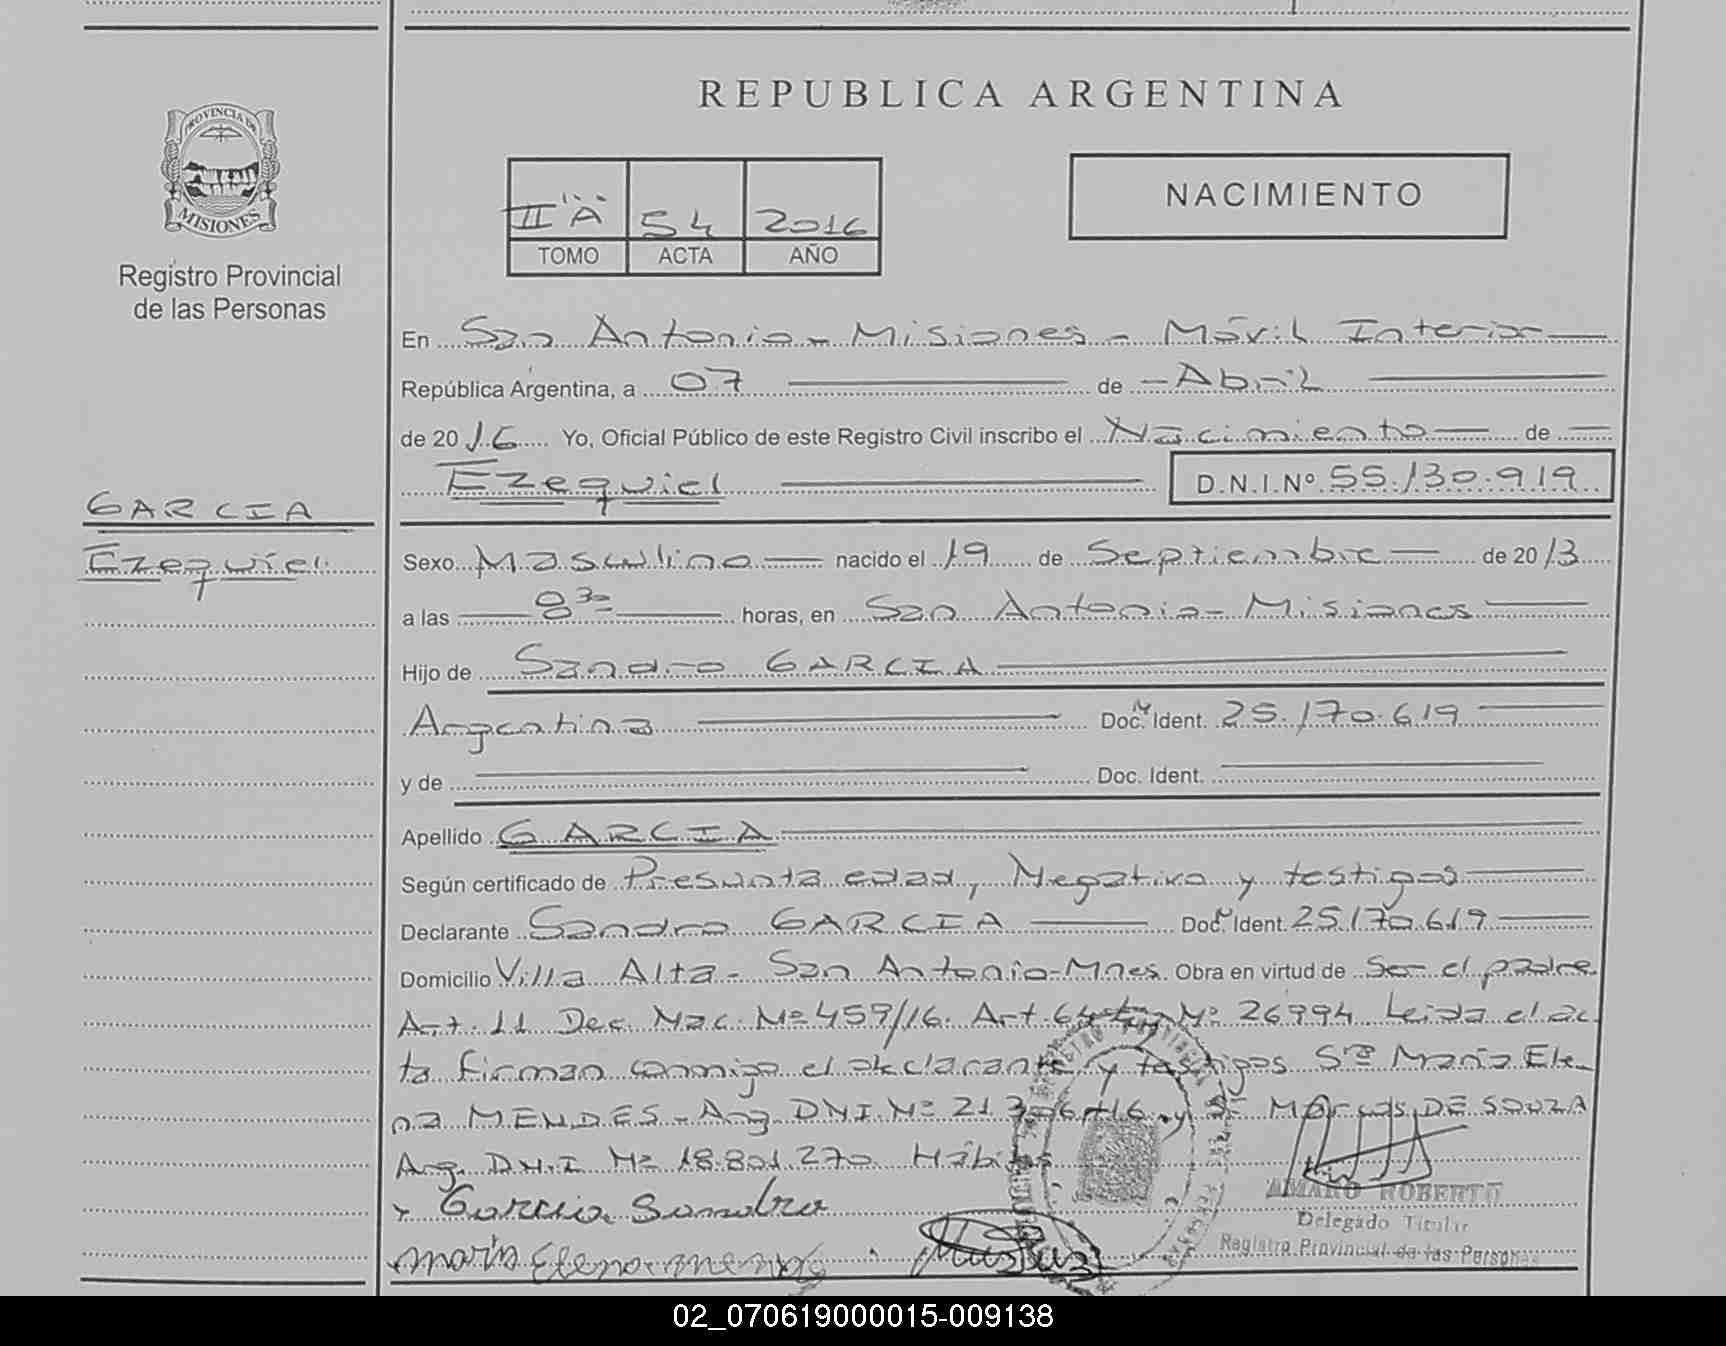 REPUBLICA ARGENTINA
PROVINCIA DE
MISIONES
Registro Provincial
de las Personas
II "A" 54 2016
TOMO ACTA AÑO
NACIMIENTO
En San Antonio - Misiones - Móvil Interior
República Argentina, a 07 de Abril
de 2016 Yo, Oficial Público de este Registro Civil inscribo el Nacimiento de
Ezequiel D.N.I.Nº 55.130.919
GARCIA
Ezequiel
Sexo Masculino nacido el 19 de Septiembre de 2013
a las 8 30 horas, en San Antonio - Misiones
Hijo de Sandro GARCIA
Argentina Doc. Ident. 25.170.619
y de Doc. Ident.
Apellido GARCIA
Según certificado de Presunta edad, Negativo y testigos
Declarante Sandro GARCIA Doc. Ident. 25.170.619
Domicilio Villa Alta - San Antonio - Mnes. Obra en virtud de Ser el padre
Art. 11 Dec. Nac. Nº 459/16. Art. 64 Ley Nº 26994 Leida el ac
ta firman conmigo el declarante y testigos Sra María Ele
na MENDES - Arg. DNI. Nº 21. y Sr Marcos DE SOUZA
Arg. D.N.I Nº 18.801.270 Hábiles
x Garcia Sandro
maria Elena
AMARO ROBERTO
Delegado Titular
Registro Provincial de las Personas
02_070619000015-009138